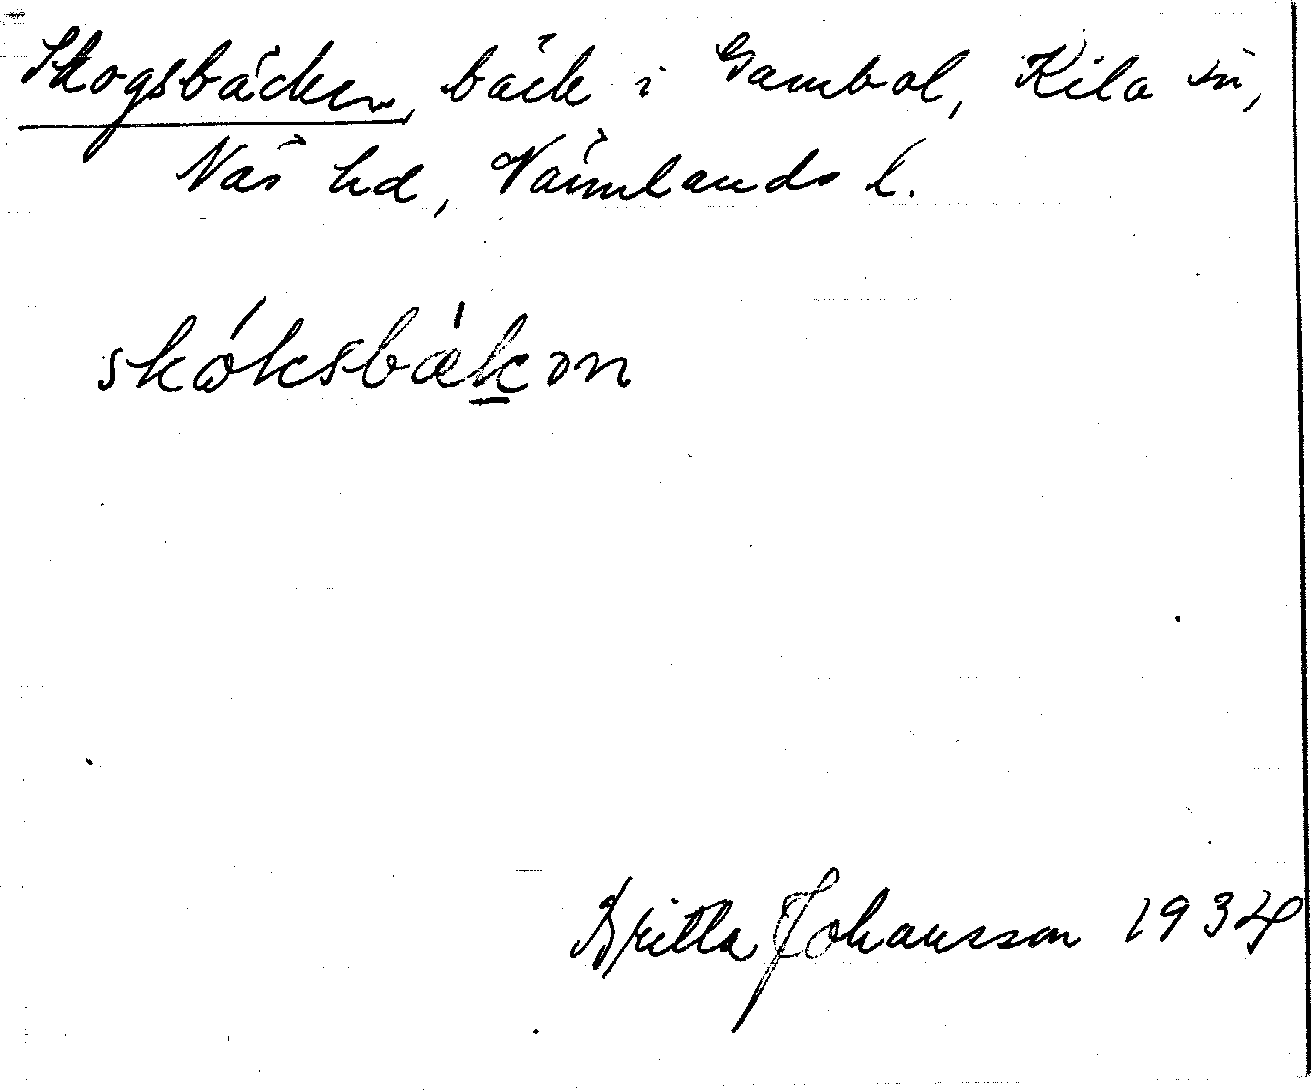 Skogsbäcken, bäck i Gambol, Kila sn,
Näs hd, Värmlands l.
skóksbæ̀kən
Britta Johansson 1934